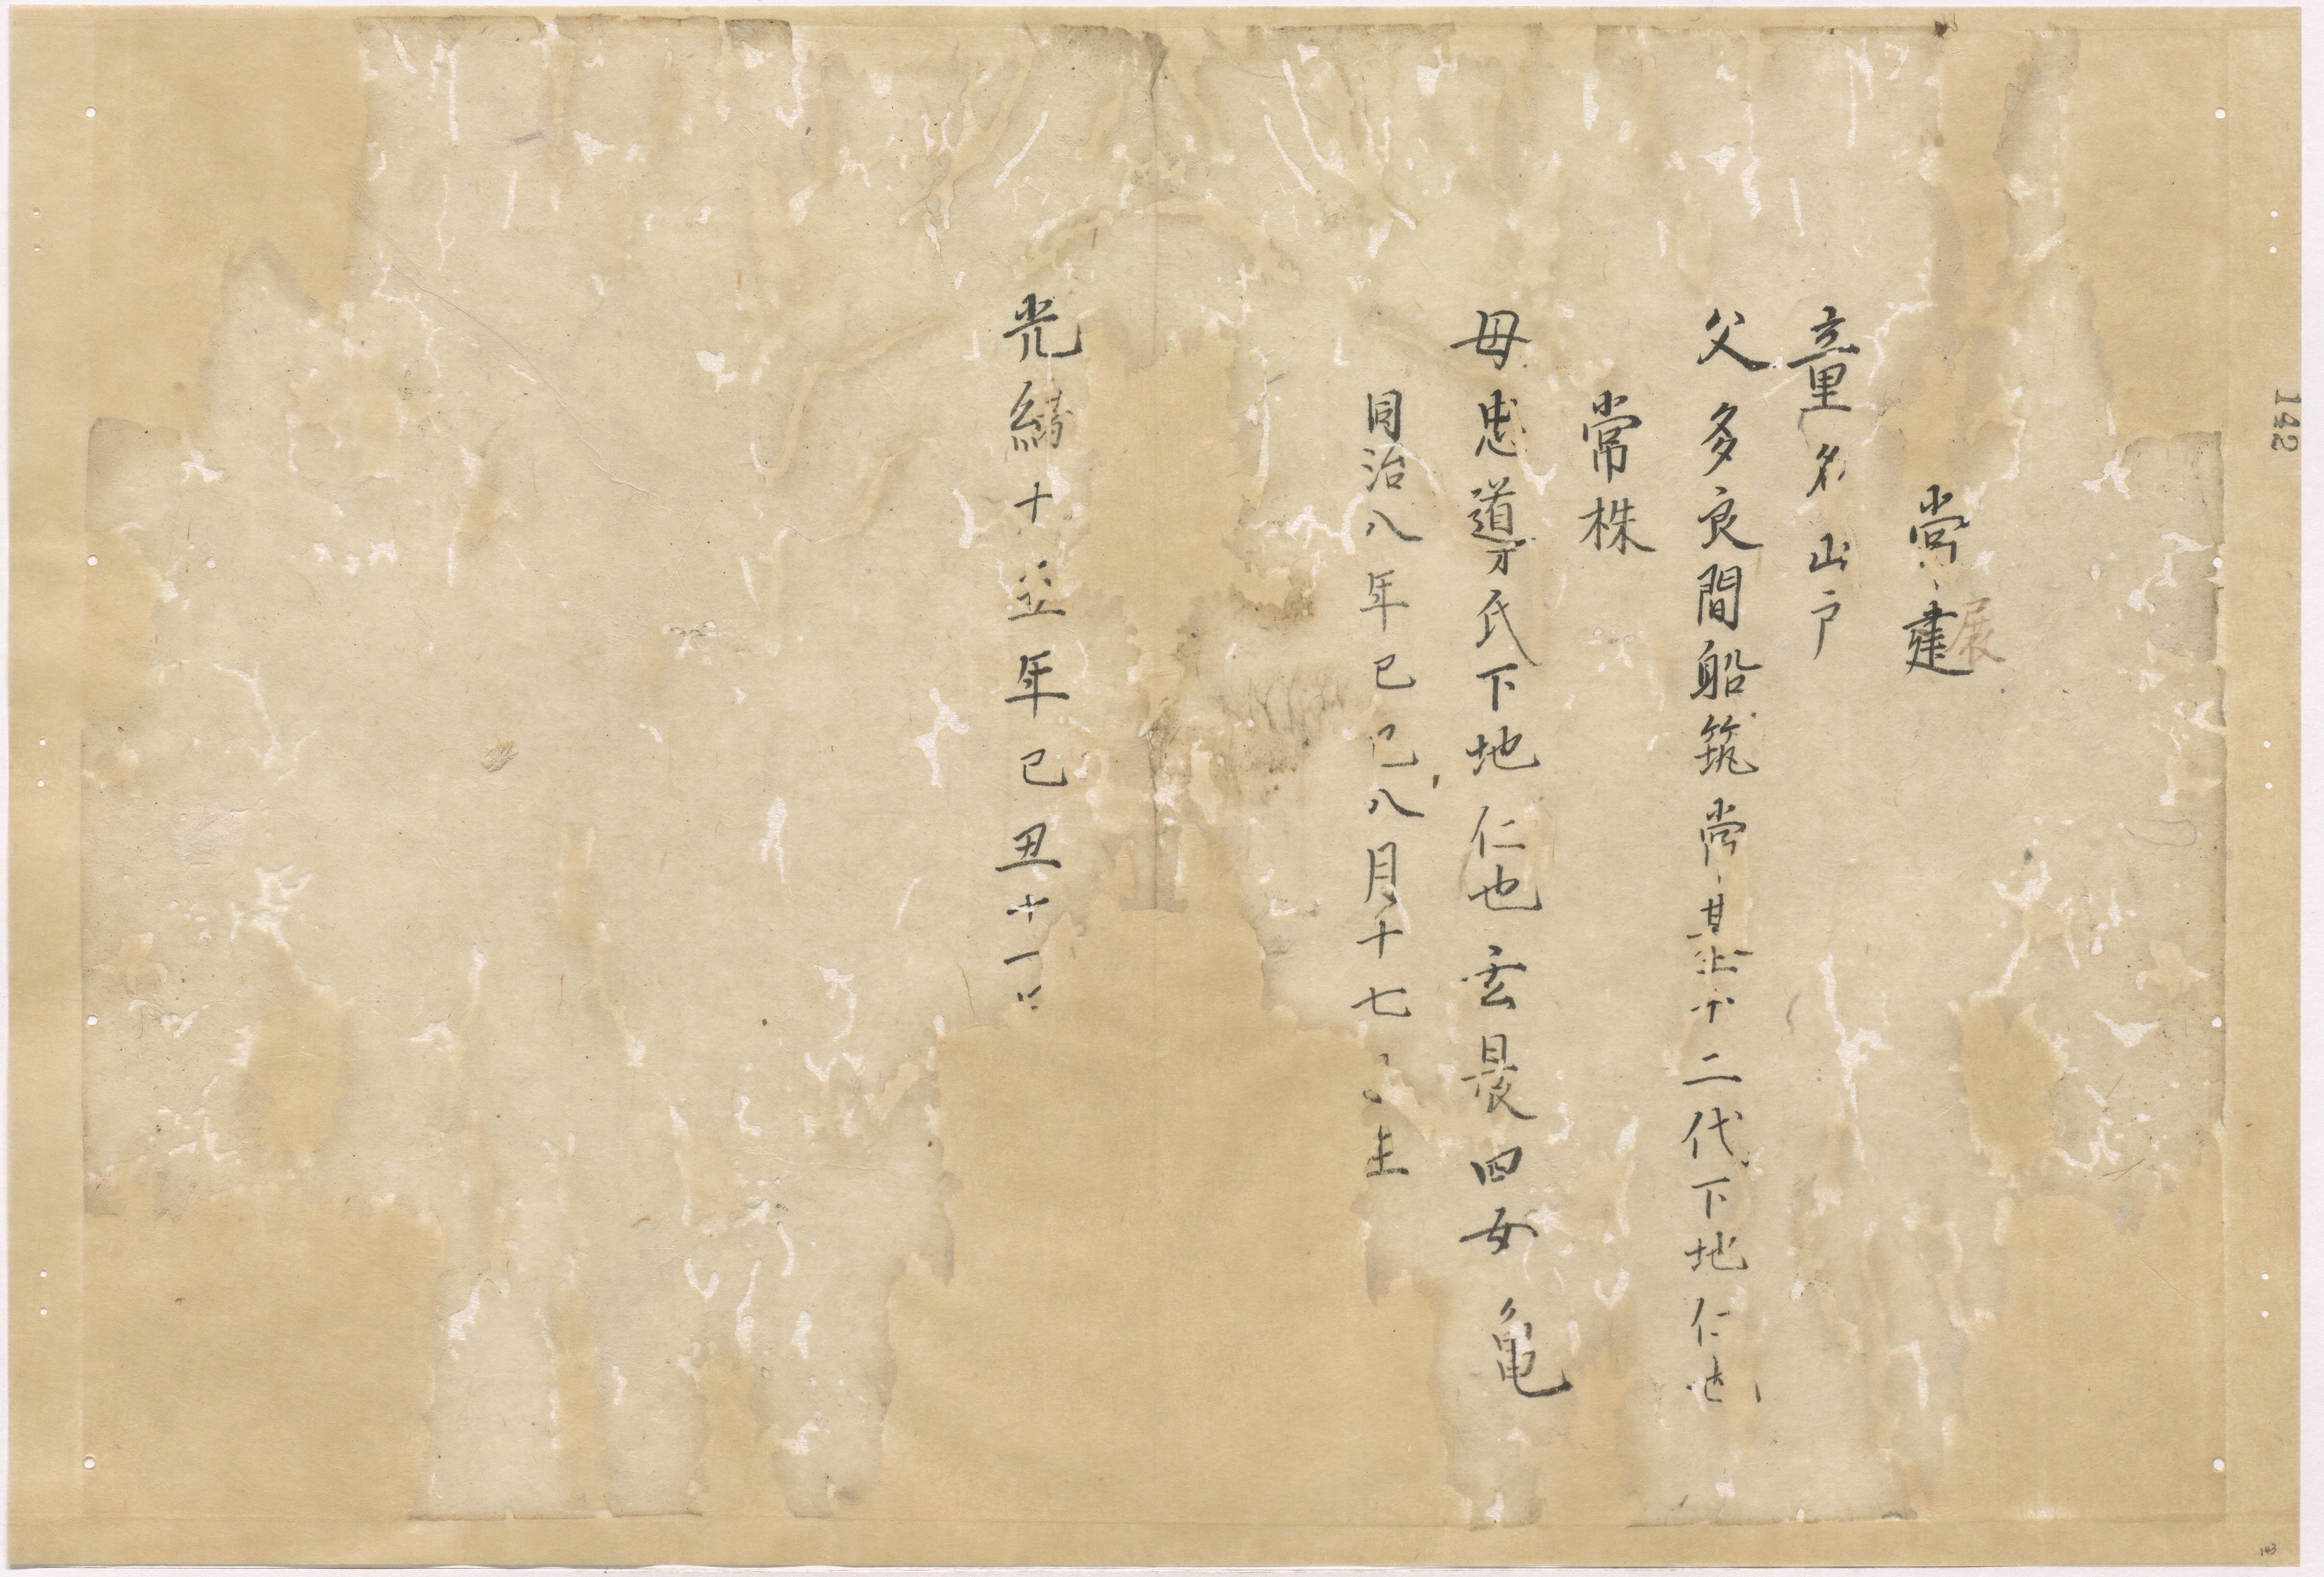 常建
展
童名山戸
父多良間船筑常其 十二代下地仁也
常株
母忠導氏下地仁也玄晨四女亀
同治八年己巳八月十七 生
光緒十五年己丑十一
142
143